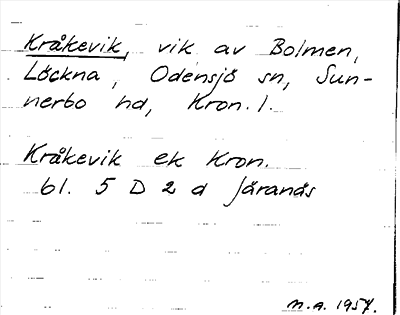 Kråkevik, vik av Bolmen,
Löckna, Odensjö sn, Sun-
nerbo hd, Kron. l.
Kråkevik ek Kron.
bl. 5 D 2 d Järanäs
M.A. 1957.